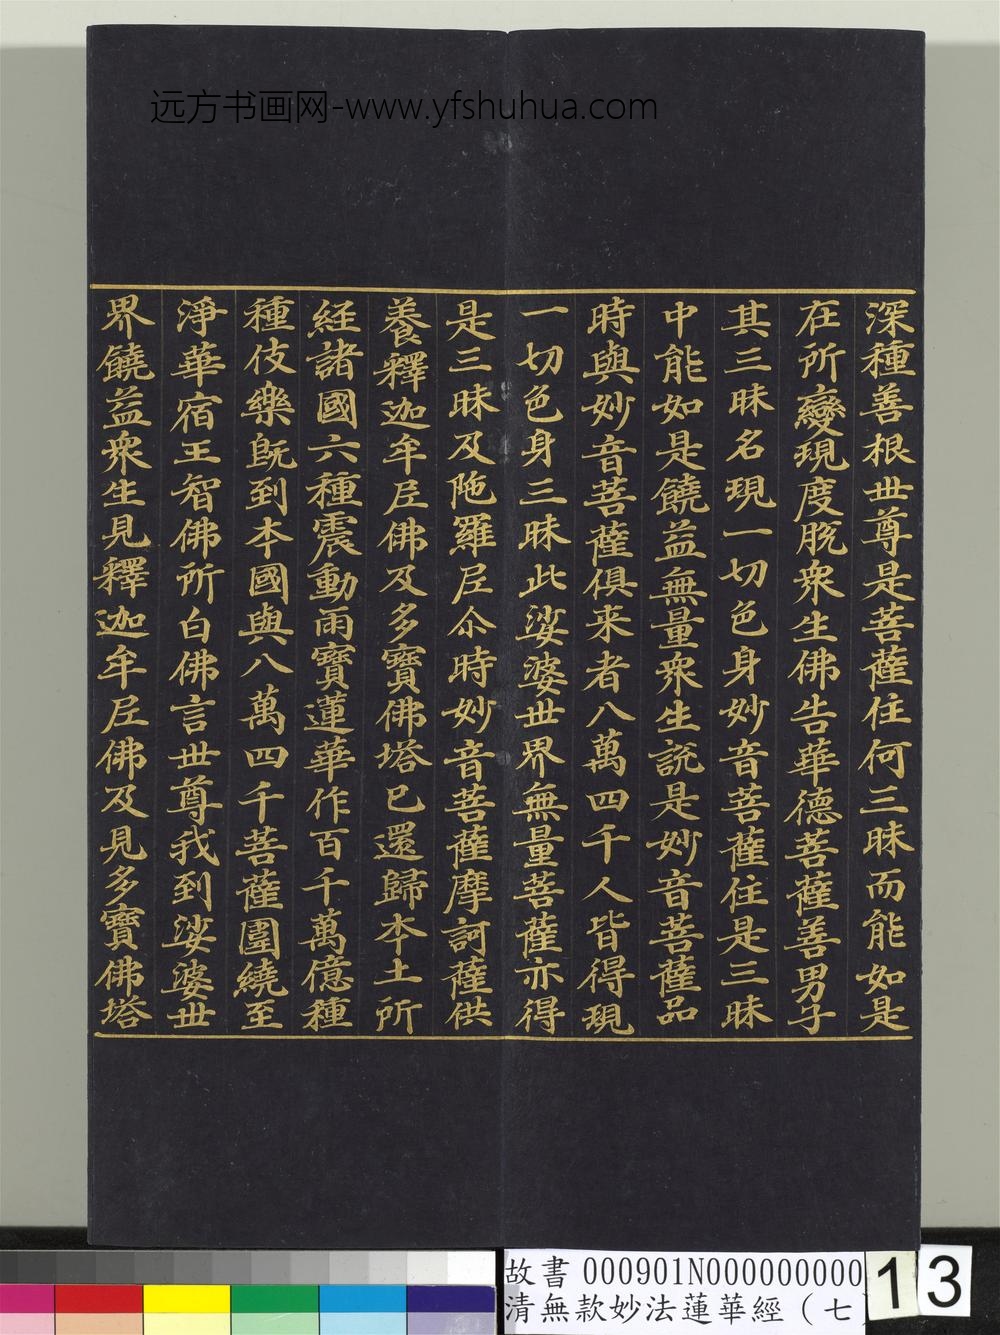 远方书画网-www.yfshuhua.com
深種善根世尊是菩薩住何三昧而能如是
在所變現度脫衆生佛告華德菩薩善男子
其三昧名現一切色身妙音菩薩住是三昧
中能如是饒益無量衆生説是妙音菩薩品
時與妙音菩薩俱来者八萬四千人皆得現
一切色身三昧此娑婆世界無量菩薩亦得
是三昧及陁羅尼尒時妙音菩薩摩訶薩供
養釋迦牟尼佛及多寶佛塔已還歸本土所
経諸國六種震動雨寶蓮華作百千萬億種
種伎樂旣到本國與八萬四千菩薩圍繞至
淨華宿王智佛所白佛言世尊我到娑婆世
界饒益衆生見釋迦牟尼佛及見多寶佛塔
故書 000901N000000000
清無款妙法蓮華經（七）
13